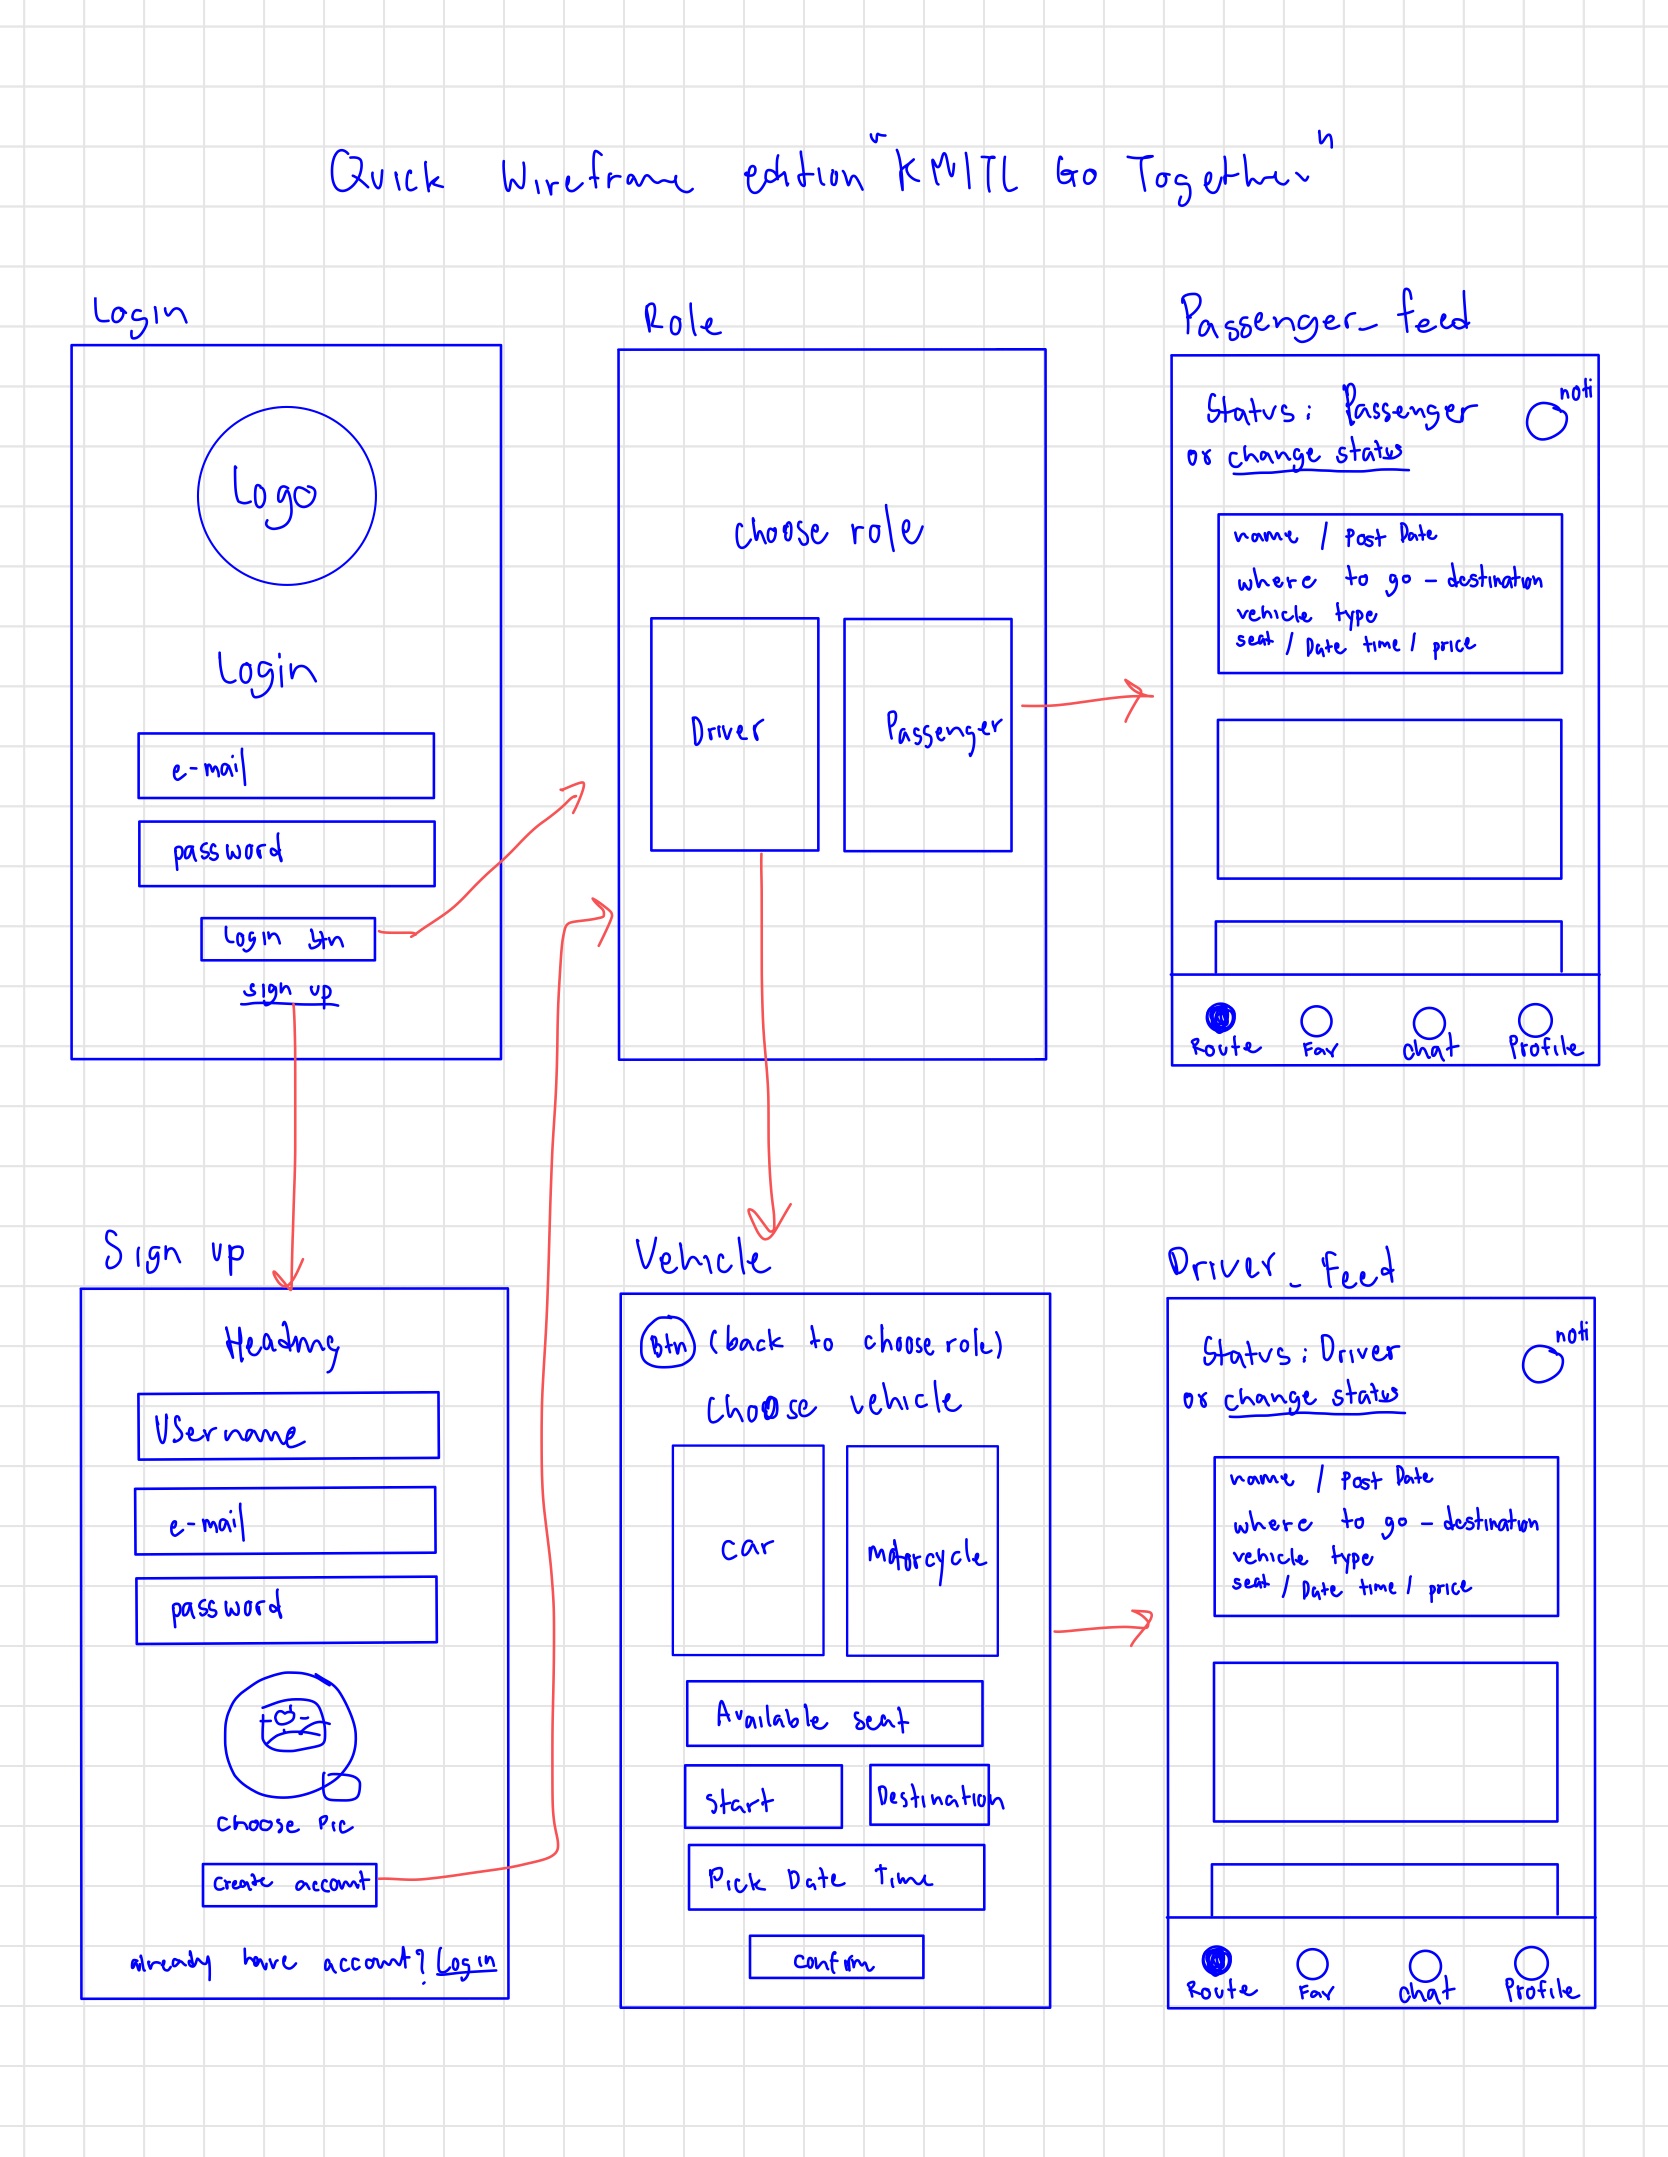 Quick Wireframe edition "KMITL Go Together"
Login
Logo
Login
e-mail
password
Login btn
sign up
Role
choose role
Driver
Passenger
Passenger_feed
Status: Passenger
noti
or change status
name / Post Date
where to go - destination
vehicle type
seat / Date time / price
Route
Fav
chat
Profile
Sign up
Heading
Username
e-mail
password
choose Pic
create account
already have account? Login
Vehicle
Btn (back to choose role)
choose vehicle
car
Motorcycle
Available seat
start
Destination
Pick Date Time
confirm
Driver_Feed
Status: Driver
noti
or change status
name / Post Date
where to go - destination
vehicle type
seat / Date time / price
Route
Fav
chat
Profile